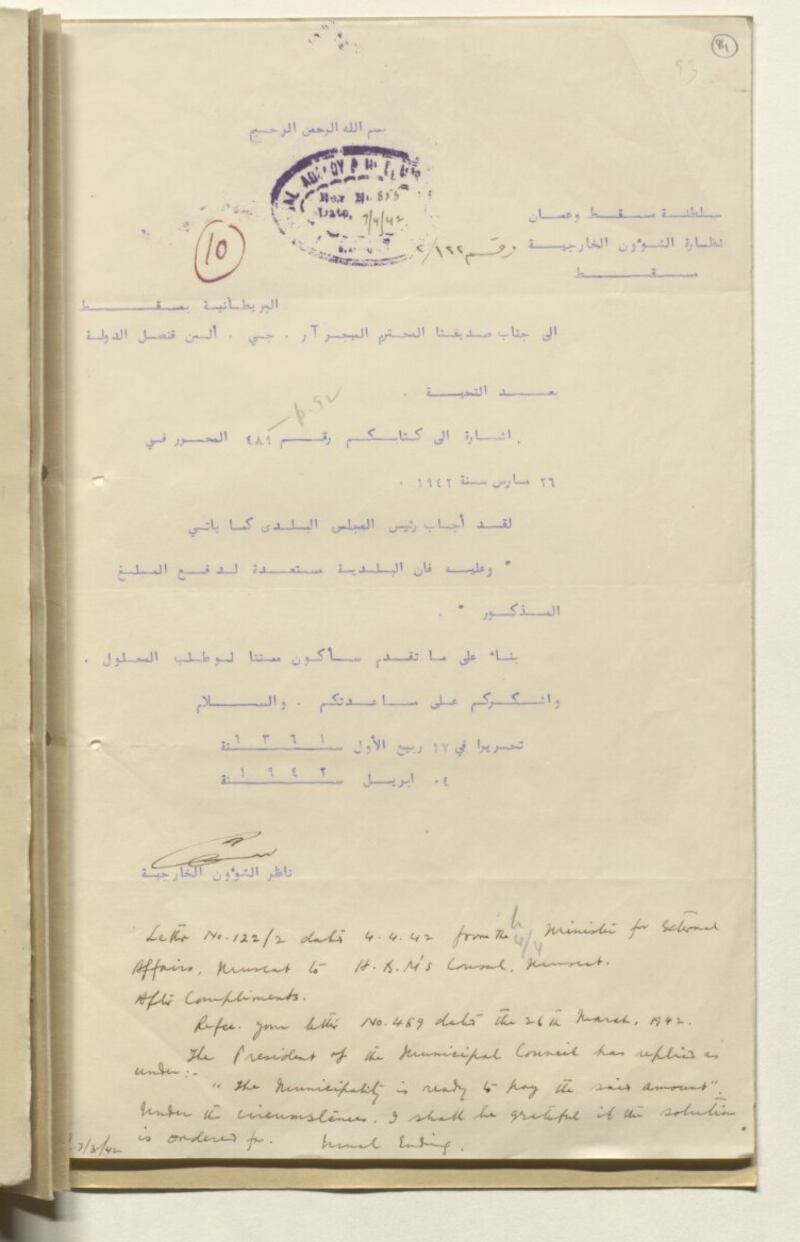 94
93
بسم الله الرحمن الرحيم
Rev No. 855
Date. 7/4/42
10
سلطنة مسقط وعمان
نظارة الشوؤن الخارجية رقم ٢/١٢٢
مسقط
البريطانية بمسقط
الى جناب صديقنا المحترم الميجر آر . جي . ألبن قنصل الدولة
بعد التحية .
p.92
اشارة الى كتابكم رقم ٤٨٩ المحرر في
٢٦ مارس سنة ١٩٤٢ .
لقد أجاب رئيس المجلس البلدى كما ياتي
" وعليه فان البلدية مستعدة لدفع المبلغ
المذكور " .
بناء على ما تقدم سأكون ممتنا لوطلب المحلول .
واشكركم على مساعدتكم . والسلام
تحريرا في ١٧ ربيع الأول سنة ١٣٦١
٠٤ ابريل سنة ١٩٤٢
ناظر الشوؤن الخارجية
Letter No. 122/2 dated 4.4.42 from the Minister for External
Affairs, Muscat to H.B.M's Consul, Muscat.
After Compliments.
Refce. your letter No. 489 dated the 26th March, 1942.
The President of the Municipal Council has replied as
under:-
"The Municipality is ready to pay the said amount".
Under the circumstances, I shall be grateful if the solution
is ordered for. Usual Ending.
7/3/42